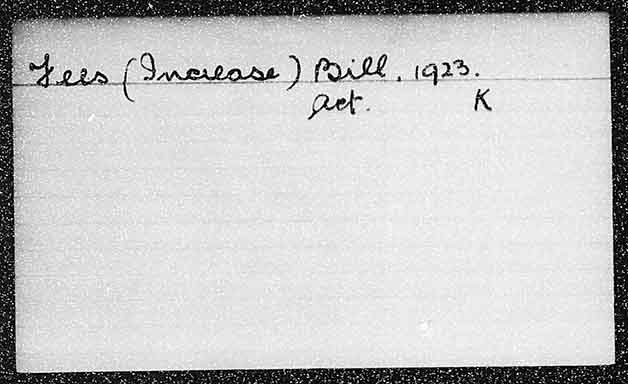 Fees (Increase) Bill, 1923.
Act. K